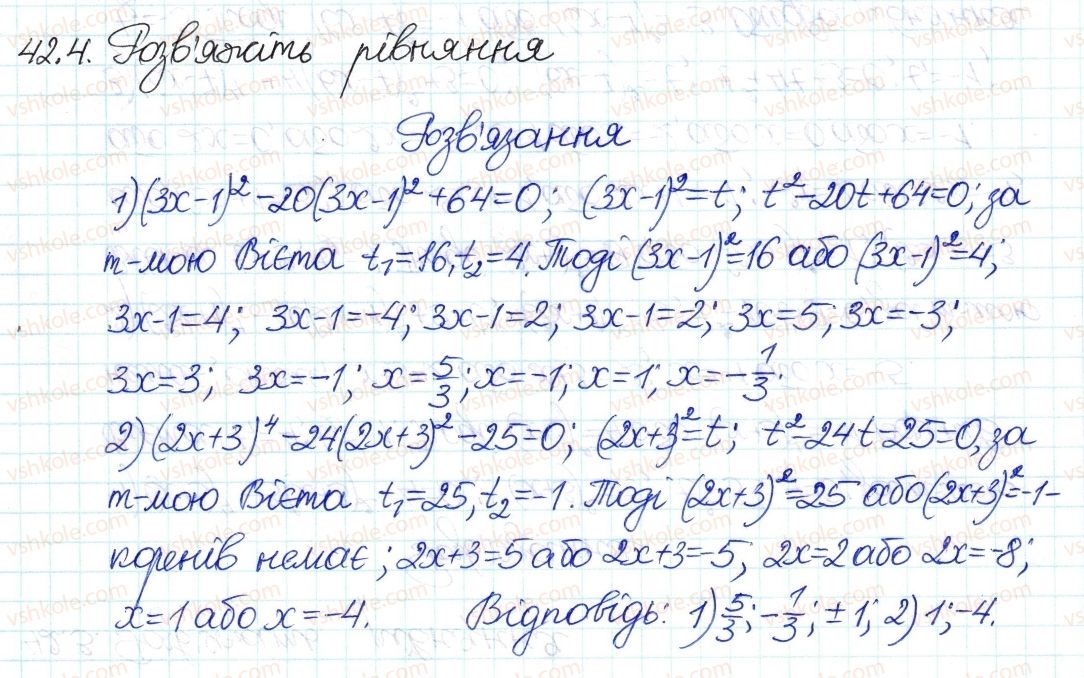 42.4. Розв'яжіть рівняння
Розв'язання
1) (3x-1)² -20(3x-1)² +64=0; (3x-1)²=t; t²-20t+64=0; за
т-мою Вієта t₁=16, t₂=4. Тоді (3x-1)²=16 або (3x-1)²=4;
3x-1=4; 3x-1=-4; 3x-1=2; 3x-1=-2; 3x=5; 3x=-3;
3x=3; 3x=-1; x=5/3; x=-1; x=1; x=-1/3.
2) (2x+3)⁴ -24(2x+3)² -25=0; (2x+3)²=t; t²-24t-25=0, за
т-мою Вієта t₁=25, t₂=-1. Тоді (2x+3)²=25 або (2x+3)²=-1-
коренів немає; 2x+3=5 або 2x+3=-5; 2x=2 або 2x=-8;
x=1 або x=-4. Відповідь: 1) 5/3; -1/3; ±1; 2) 1; -4.